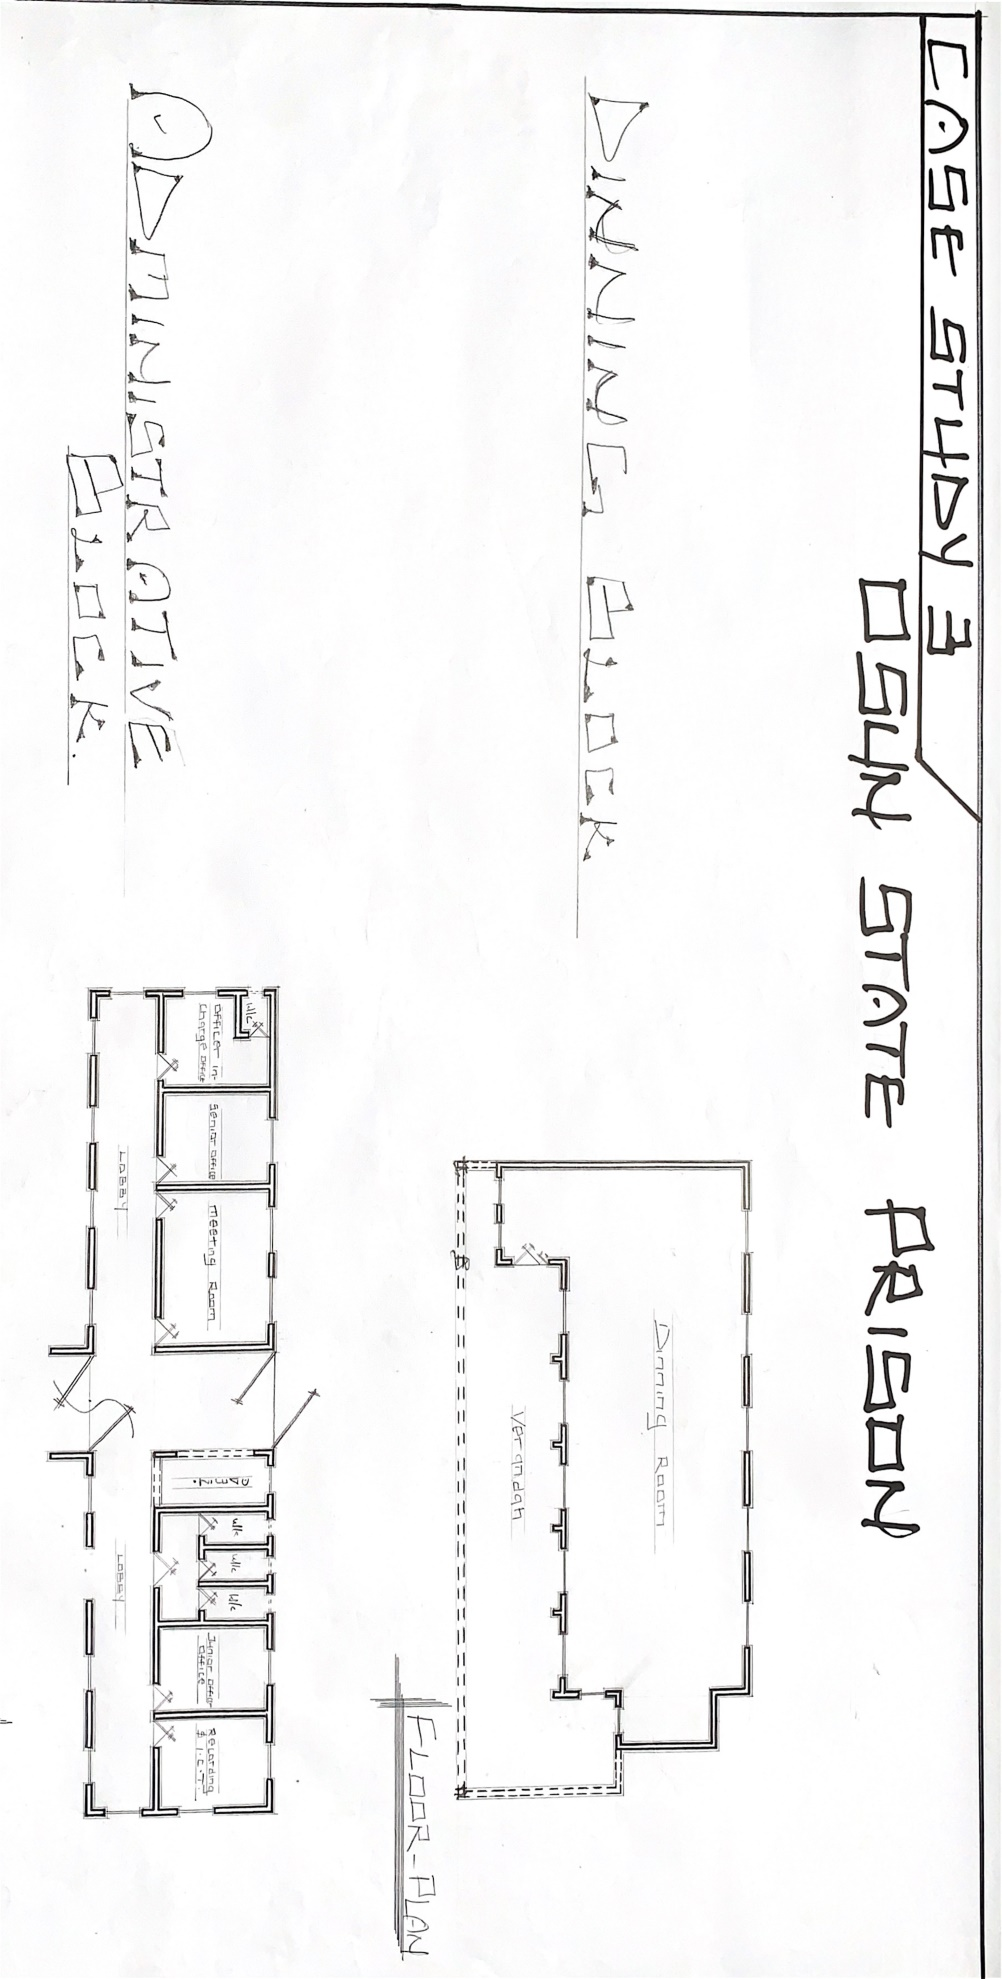 CASE STUDY 3
OSUN STATE PRISON
DINNING BLOCK
Dinning Room
Verandah
FLOOR-PLAN
ADMINISTRATIVE
BLOCK.
W/c
officer in-
charge office
Senior office
Meeting Room
LOBBY
W/c
W/c
W/c
office
Recording
& I.C.T.
LOBBY